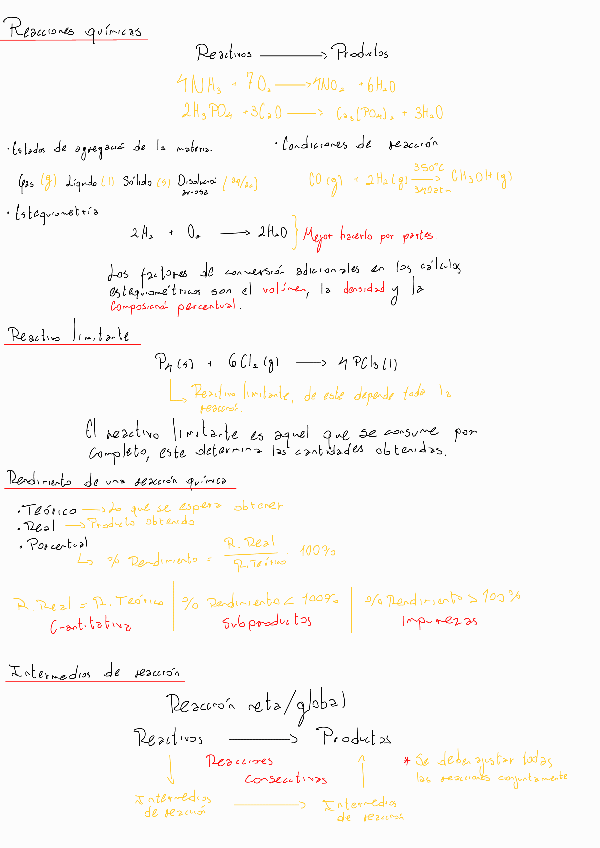 Reacciones químicas
Reactivos → Productos
4NH₃ + 7O₂ → 4NO₂ + 6H₂O
2H₃PO₄ + 3CaO → Ca₃(PO₄)₂ + 3H₂O
· Estados de agregación de la materia.
· Condiciones de reacción
Gas (g) Líquido (l) Sólido (s) Disolución acuosa (aq/ac)
CO(g) + 2H₂(g) 350°C 340atm → CH₃OH(g)
· Estequiometría
2H₂ + O₂ → 2H₂O } Mejor hacerlo por partes
Los factores de conversión adicionales en los cálculos
estequiométricos son el volúmen, la densidad y la
composición porcentual.
Reactivo limitante
P₄(s) + 6Cl₂(g) → 4PCl₃(l)
Reactivo limitante, de este depende toda la
reacción.
El reactivo limitante es aquel que se consume por
completo, este determina las cantidades obtenidas.
Rendimiento de una reacción química
· Teórico → Lo que se espera obtener
· Real → Producto obtenido
· Porcentual
↳ % Rendimiento = R. Real / R. Teórico · 100%
R. Real = R. Teórico | % Rendimiento < 100% | % Rendimiento > 100%
Cuantitativa Subproductos Impurezas
Intermedios de reacción
Reacción neta/global
Reactivos → Productos
Reacciones
consecutivas
* Se debe ajustar todas
las reacciones conjuntamente
Intermedios
de reacción
→
Intermedios
de reacción